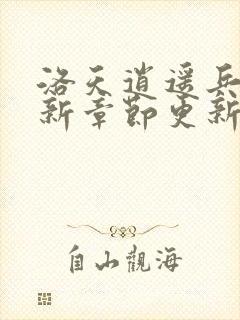 洛天逍遥兵
新章节更新
自山觀海